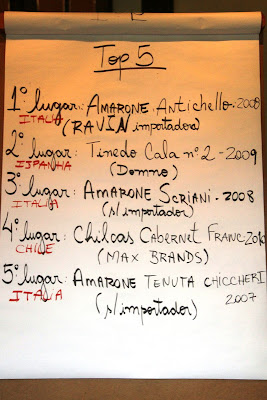 Top 5
1º lugar: AMARONE Antichello - 2008
ITALIA (RAVIN importadora)
2º lugar: Tinedo Cala nº 2 - 2009
ISPANHA (Domno)
3º lugar: AMARONE SCRIANI - 2008
ITALIA (s/ importador)
4º lugar: Chilcas CABERNET FRANC - 2010
CHILE (MAX BRANDS)
5º lugar: AMARONE TENUTA CHICCHERI
ITALIA 2007
(s/ importador)